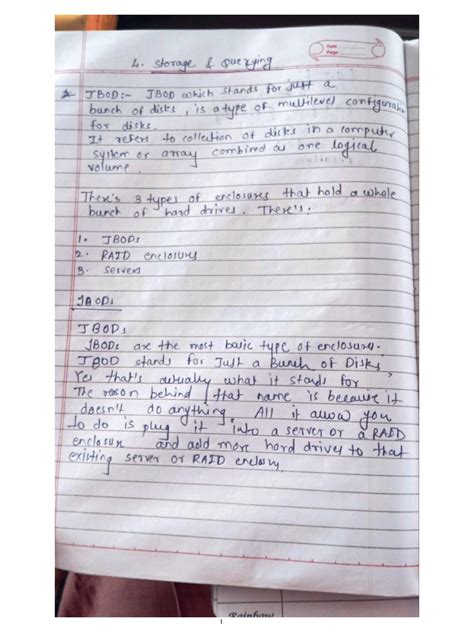 Date
Page
4. Storage & Querying
* JBOD:- JBOD which stands for just a
bunch of disks, is a type of multilevel configuration
for disks.
It refers to collection of disks in a computer
system or array combined as one logical
volume.
There's 3 types of enclosures that hold a whole
bunch of hard drives. There's:
1. JBODs
2. RAID enclosures
3. Servers
JBODs
JBODs
JBODs are the most basic type of enclosure.
JBOD stands for Just a Bunch of Disks,
Yes that's actually what it stands for
The reason behind that name is because it
doesn't do anything. All it allow you
to do is plug it into a server or a RAID
enclosure and add more hard drives to that
existing server or RAID enclosry.
Rainbow
1